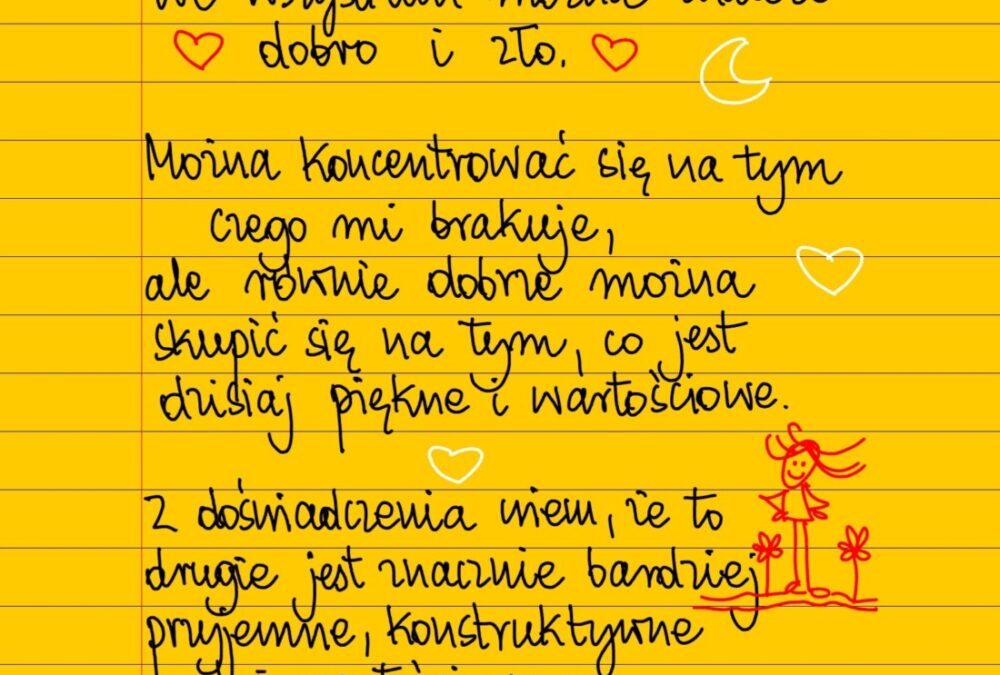 We wszystkim można znaleźć
dobro i zło.
Można koncentrować się na tym
czego mi brakuje,
ale równie dobrze można
skupić się na tym, co jest
dzisiaj piękne i wartościowe.
Z doświadczenia wiem, że to
drugie jest znacznie bardziej
przyjemne, konstruktywne